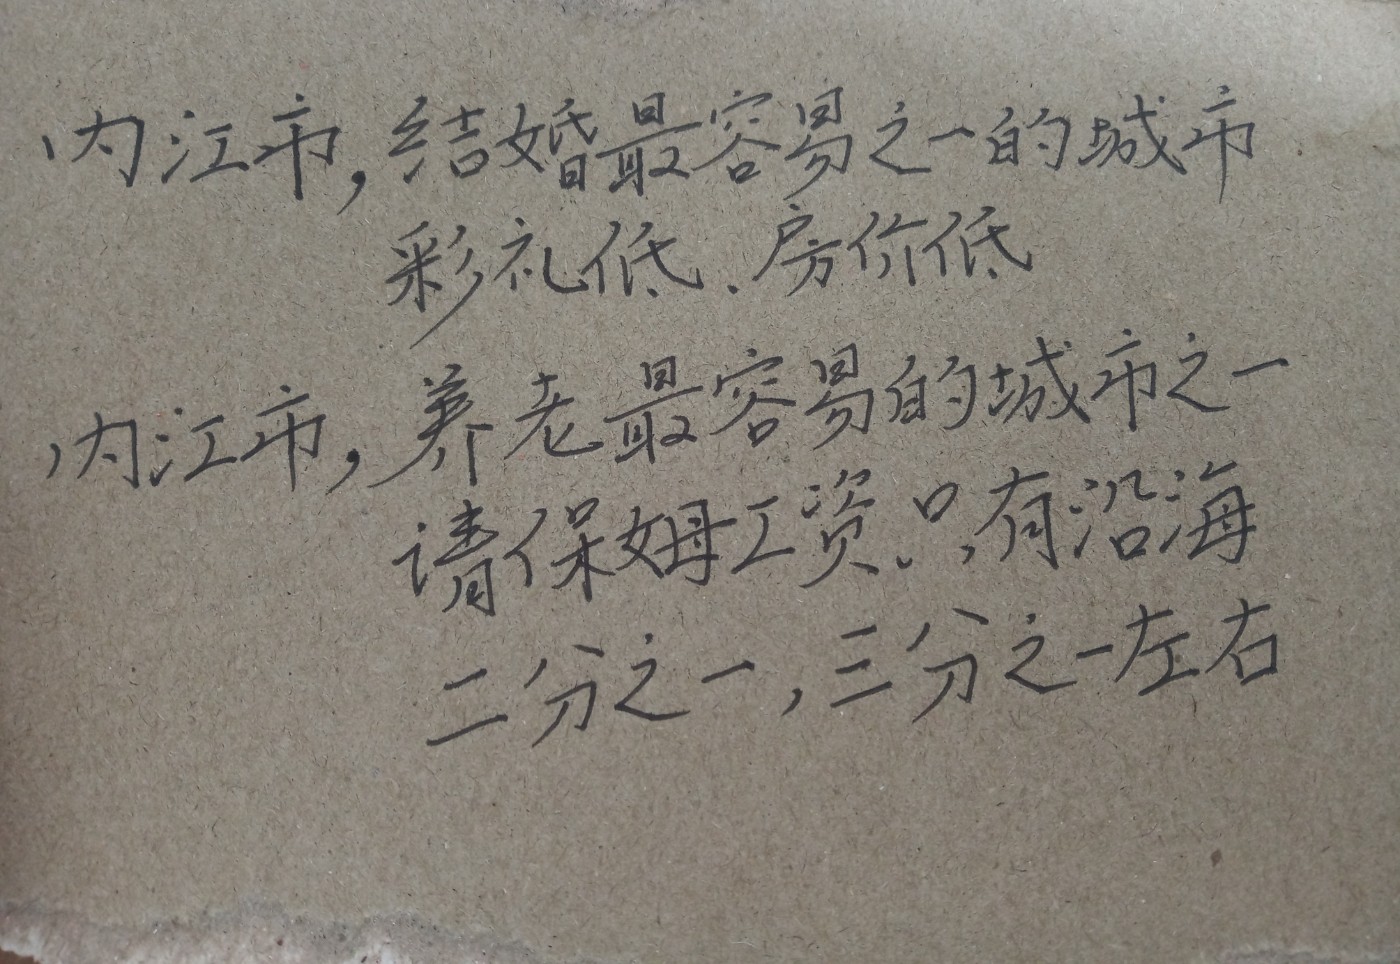 内江市,结婚最容易之一的城市
彩礼低.房价低
内江市,养老最容易的城市之一
请保姆工资.只有沿海
二分之一,三分之一左右